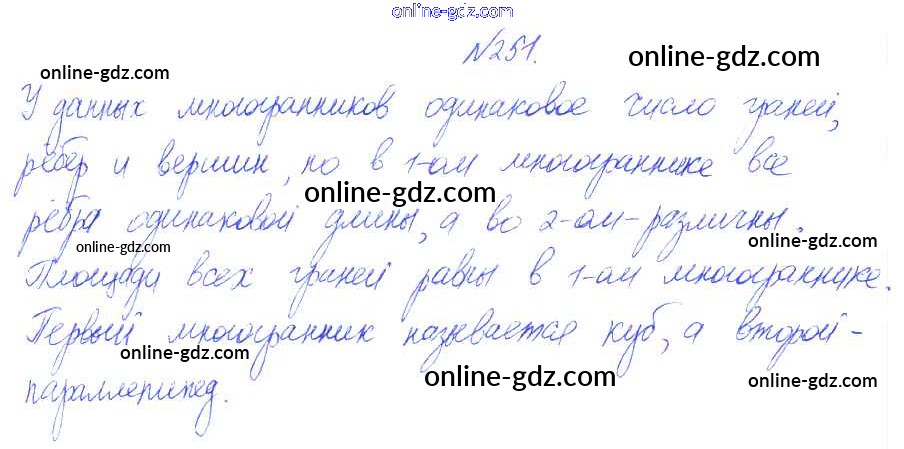 online-gdz.com
№251.
online-gdz.com
online-gdz.com
У данных многогранников одинаковое число граней,
рёбер и вершин, но в 1-ом многограннике все
online-gdz.com
рёбра одинаковой длины, а во 2-ом - различны.
online-gdz.com
online-gdz.com
Площади всех граней равны в 1-ом многограннике.
Первый многогранник называется куб, а второй -
online-gdz.com
online-gdz.com
online-gdz.com
параллепипед.